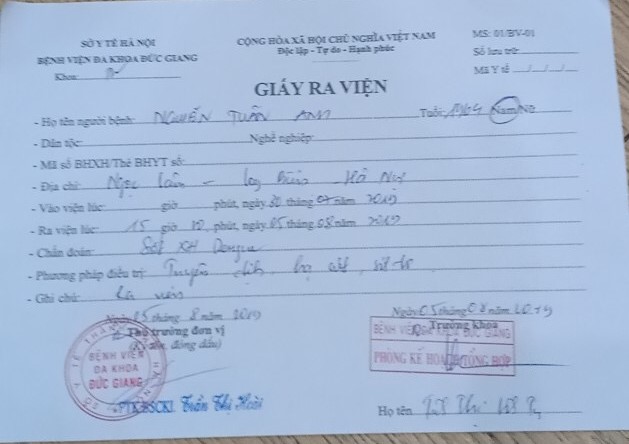 SỞ Y TẾ HÀ NỘI
BỆNH VIỆN ĐA KHOA ĐỨC GIANG
Khoa:
CỘNG HÒA XÃ HỘI CHỦ NGHĨA VIỆT NAM
Độc lập - Tự do - Hạnh phúc
MS: 01/BV-01
Số lưu trữ:
Mã Y tế ..../..../....
GIẤY RA VIỆN
- Họ tên người bệnh: NGUYỄN TUẤN ANH Tuổi: Nam/Nữ
- Dân tộc: Nghề nghiệp:
- Mã số BHXH/Thẻ BHYT số:
- Địa chỉ: Ngọc Lâm - Long Biên - Hà Nội
- Vào viện lúc: giờ phút, ngày tháng 07 năm 2019
- Ra viện lúc: 15 giờ phút, ngày 05 tháng 08 năm 2019
- Chẩn đoán: Sốt XH Dengue
- Phương pháp điều trị: Truyền dịch, hạ sốt,
- Ghi chú: Ra viện
Ngày 05 tháng 8 năm 2019
Thủ trưởng đơn vị
(Ký tên, đóng dấu)
SỞ Y TẾ THÀNH PHỐ HÀ NỘI
BỆNH VIỆN
ĐA KHOA
ĐỨC GIANG
PTK.BSCKI. Trần Thị Hoài
Ngày 05 tháng 08 năm 2019
Trưởng Khoa
BỆNH VIỆN ĐA KHOA ĐỨC GIANG
PHÒNG KẾ HOẠCH TỔNG HỢP
Họ tên